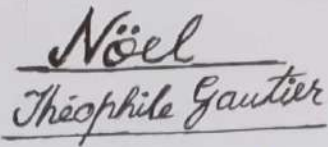 Nöel
Théophile Gautier